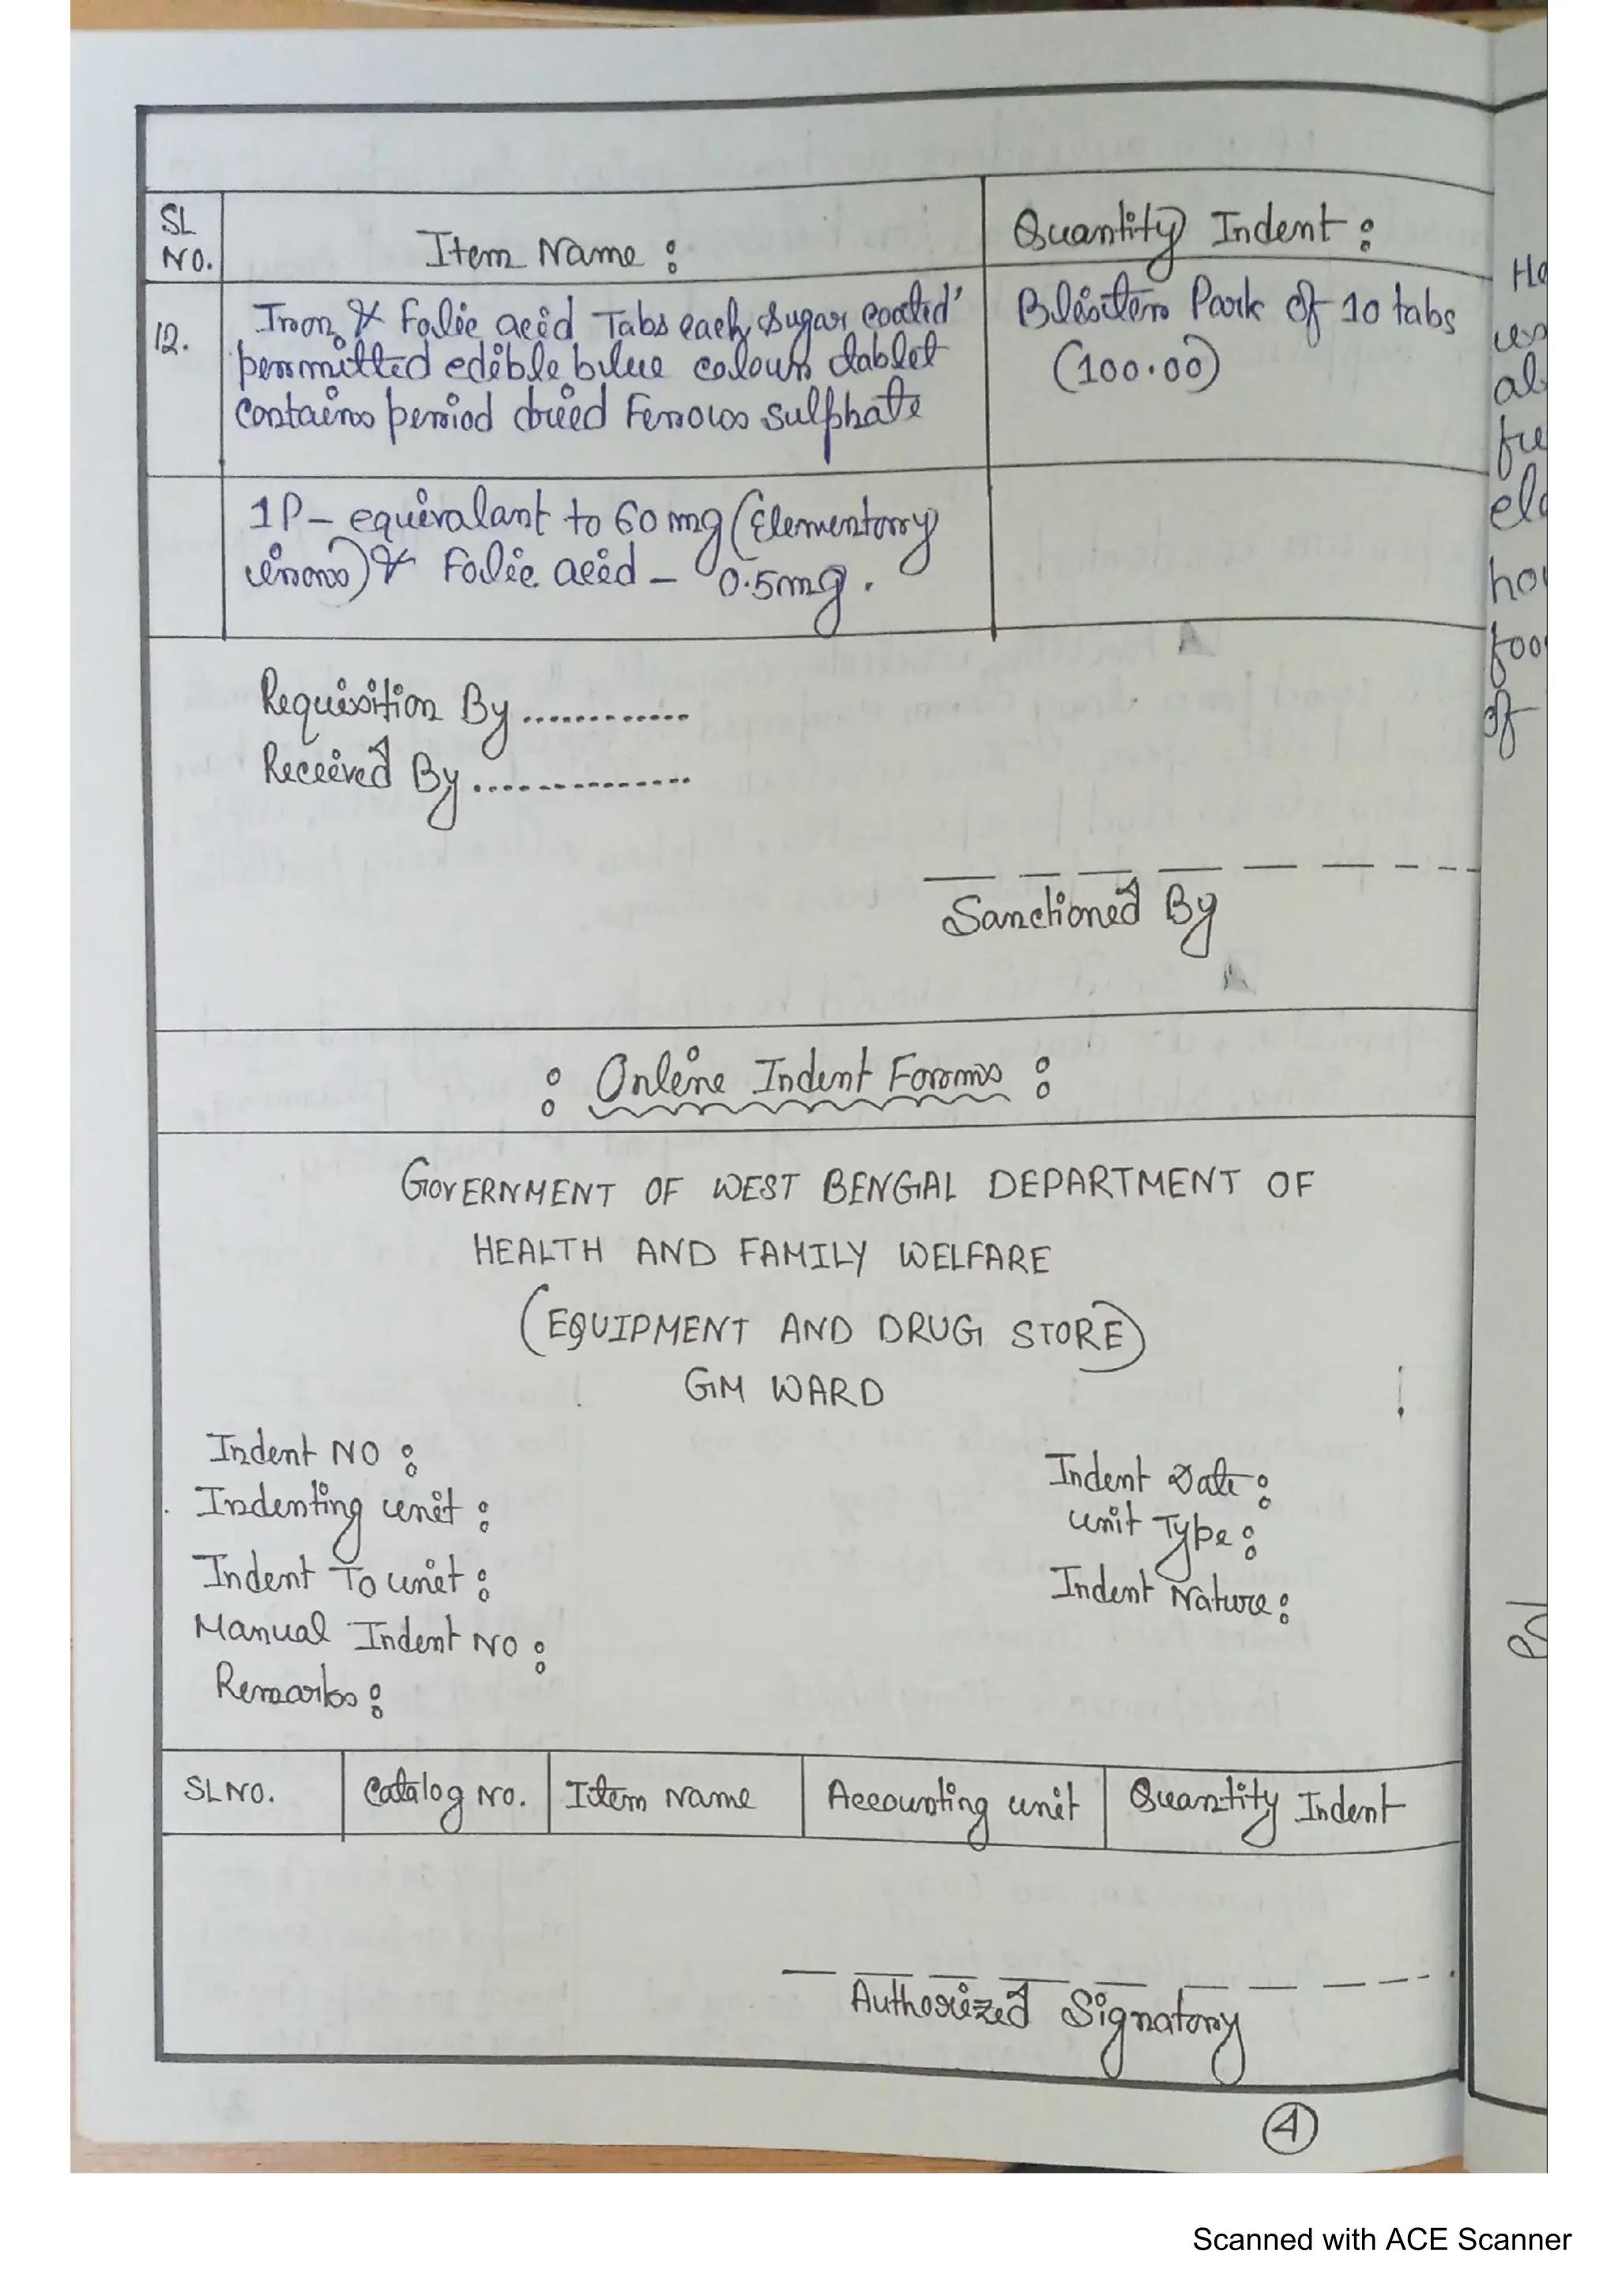 SL
NO.
Item Name :
Quantity Indent :
12.
Iron & Folic acid Tabs each sugar coated
permitted edible blue colour tablet
contains period dried Ferrous sulphate
Blister Pack of 10 tabs
(100.00)
IP - equivalant to 60 mg (Elementory
iron) & Folic acid - 0.5mg.
Requisition By ............
Received By ..............
Sanctioned By
: Online Indent Forms :
GOVERNMENT OF WEST BENGAL DEPARTMENT OF
HEALTH AND FAMILY WELFARE
(EQUIPMENT AND DRUG STORE)
GM WARD
Indent NO :
Indent Date :
Indenting unit :
Unit Type :
Indent To unit :
Indent Nature :
Manual Indent NO :
Remarks :
SL NO. Catalog NO. Item Name Accounting unit Quantity Indent
Authorized Signatory
4
Scanned with ACE Scanner